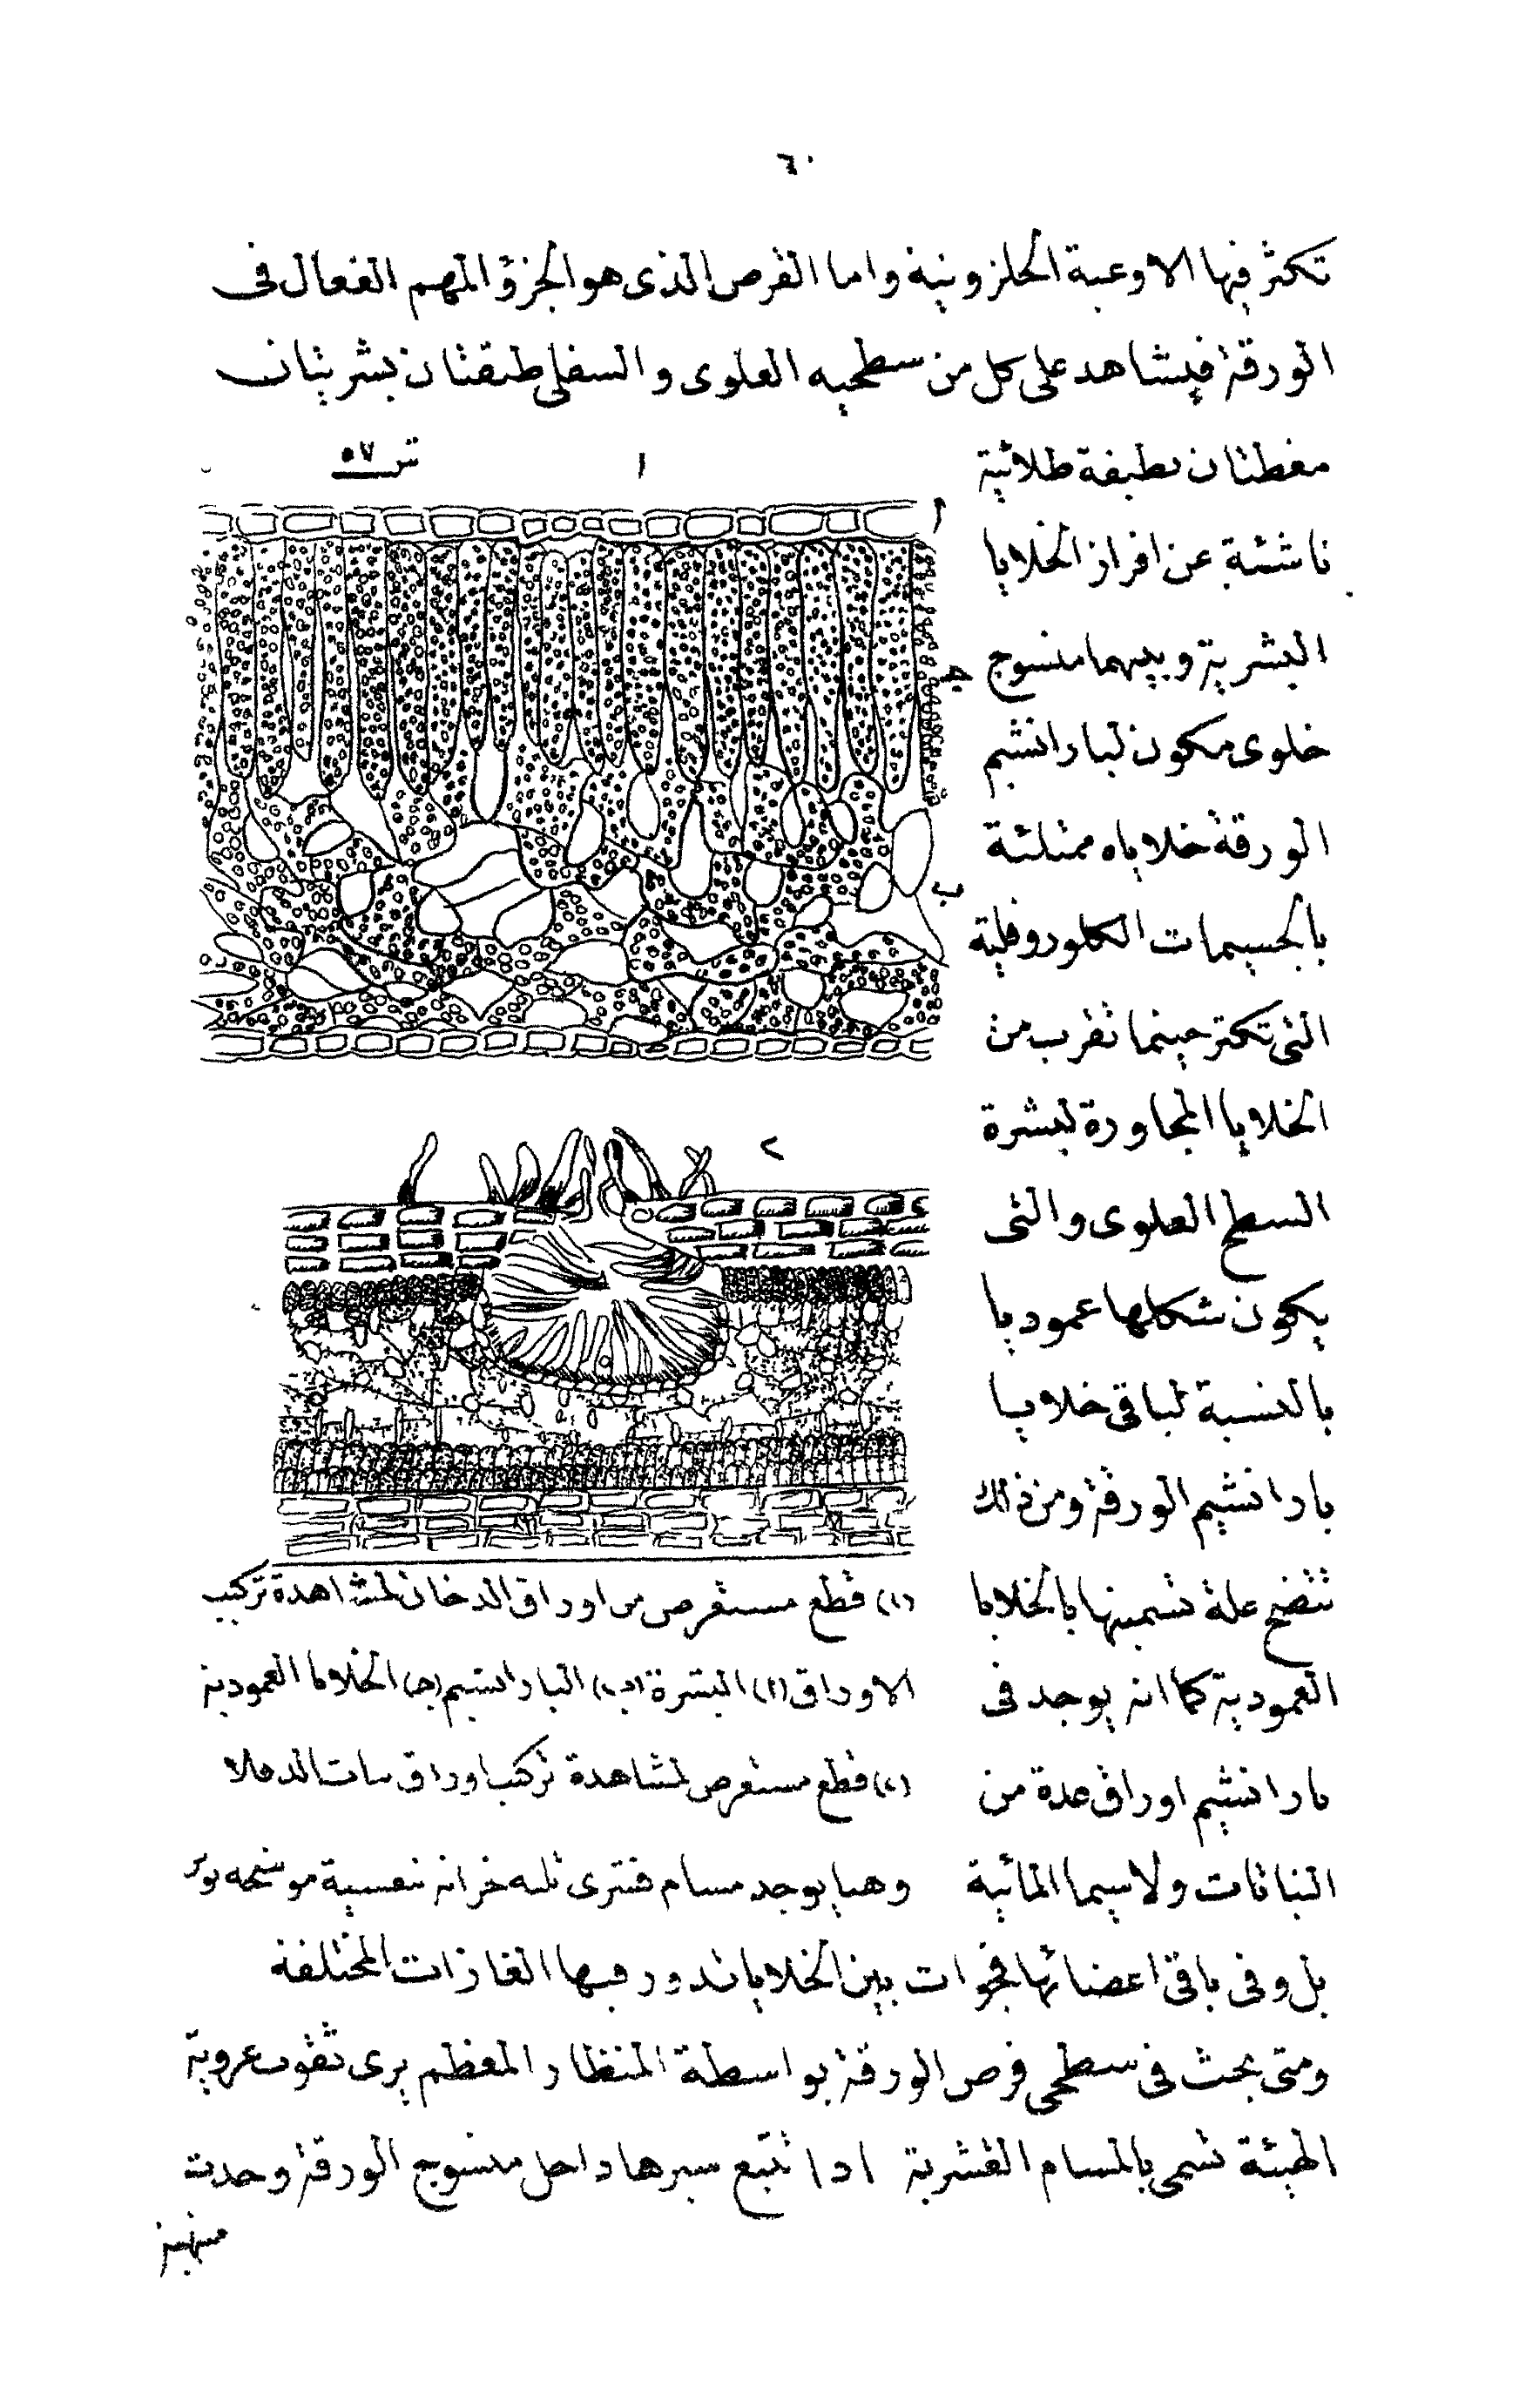 ٦٠
تكثر فيها الاوعية الحلزونية واما القرص الذى هو الجزؤ المهم الفعال فى
الورقة فيشاهد على كل من سطحيه العلوى والسفلى طبقتان بشريتان
مغطتان بطبقة طلائية
ناشئة عن افراز الخلايا
البشرية وبينهما منسوج
خلوى مكون لبارانشيم
الورقة خلاياه ممتلئة
بالجسيمات الكلوروفلية
التى تكثر حينما تقرب من
الخلايا المجاورة لبشرة
السطح العلوى والتى
يكون شكلها عموديا
بالنسبة لباقى خلايا
بارانشيم الورقة ومن ذلك
تتضح علة تسميتها بالخلايا
العمودية كما انه يوجد فى
بارانشيم اوراق عدة من
النباتات ولاسيما المائية
ش ٥٧
١
ا
جـ
ب
٢
(١) قطع مستعرض من اوراق الدخان لمشاهدة تركيب
الاوراق (ا) البشرة (ب) البارانشيم (جـ) الخلايا العمودية
(٢) قطع مستعرض لمشاهدة تركيب اوراق نبات الدفلا
وهنا يوجد مسام فترى ثلبه خزانه تنفسية موشحه بوبر
بل وفى باقى اعضائها فجوات بين الخلايا تدور فيها الغازات المختلفة
ومتى بحث فى سطحى قرص الورقة بواسطة المنظار المعظم يرى ثقوب عروية
الهيئة تسمى بالمسام القشرية اذا تتبع سيرها داخل منسوج الورقة وجدت
منتهية